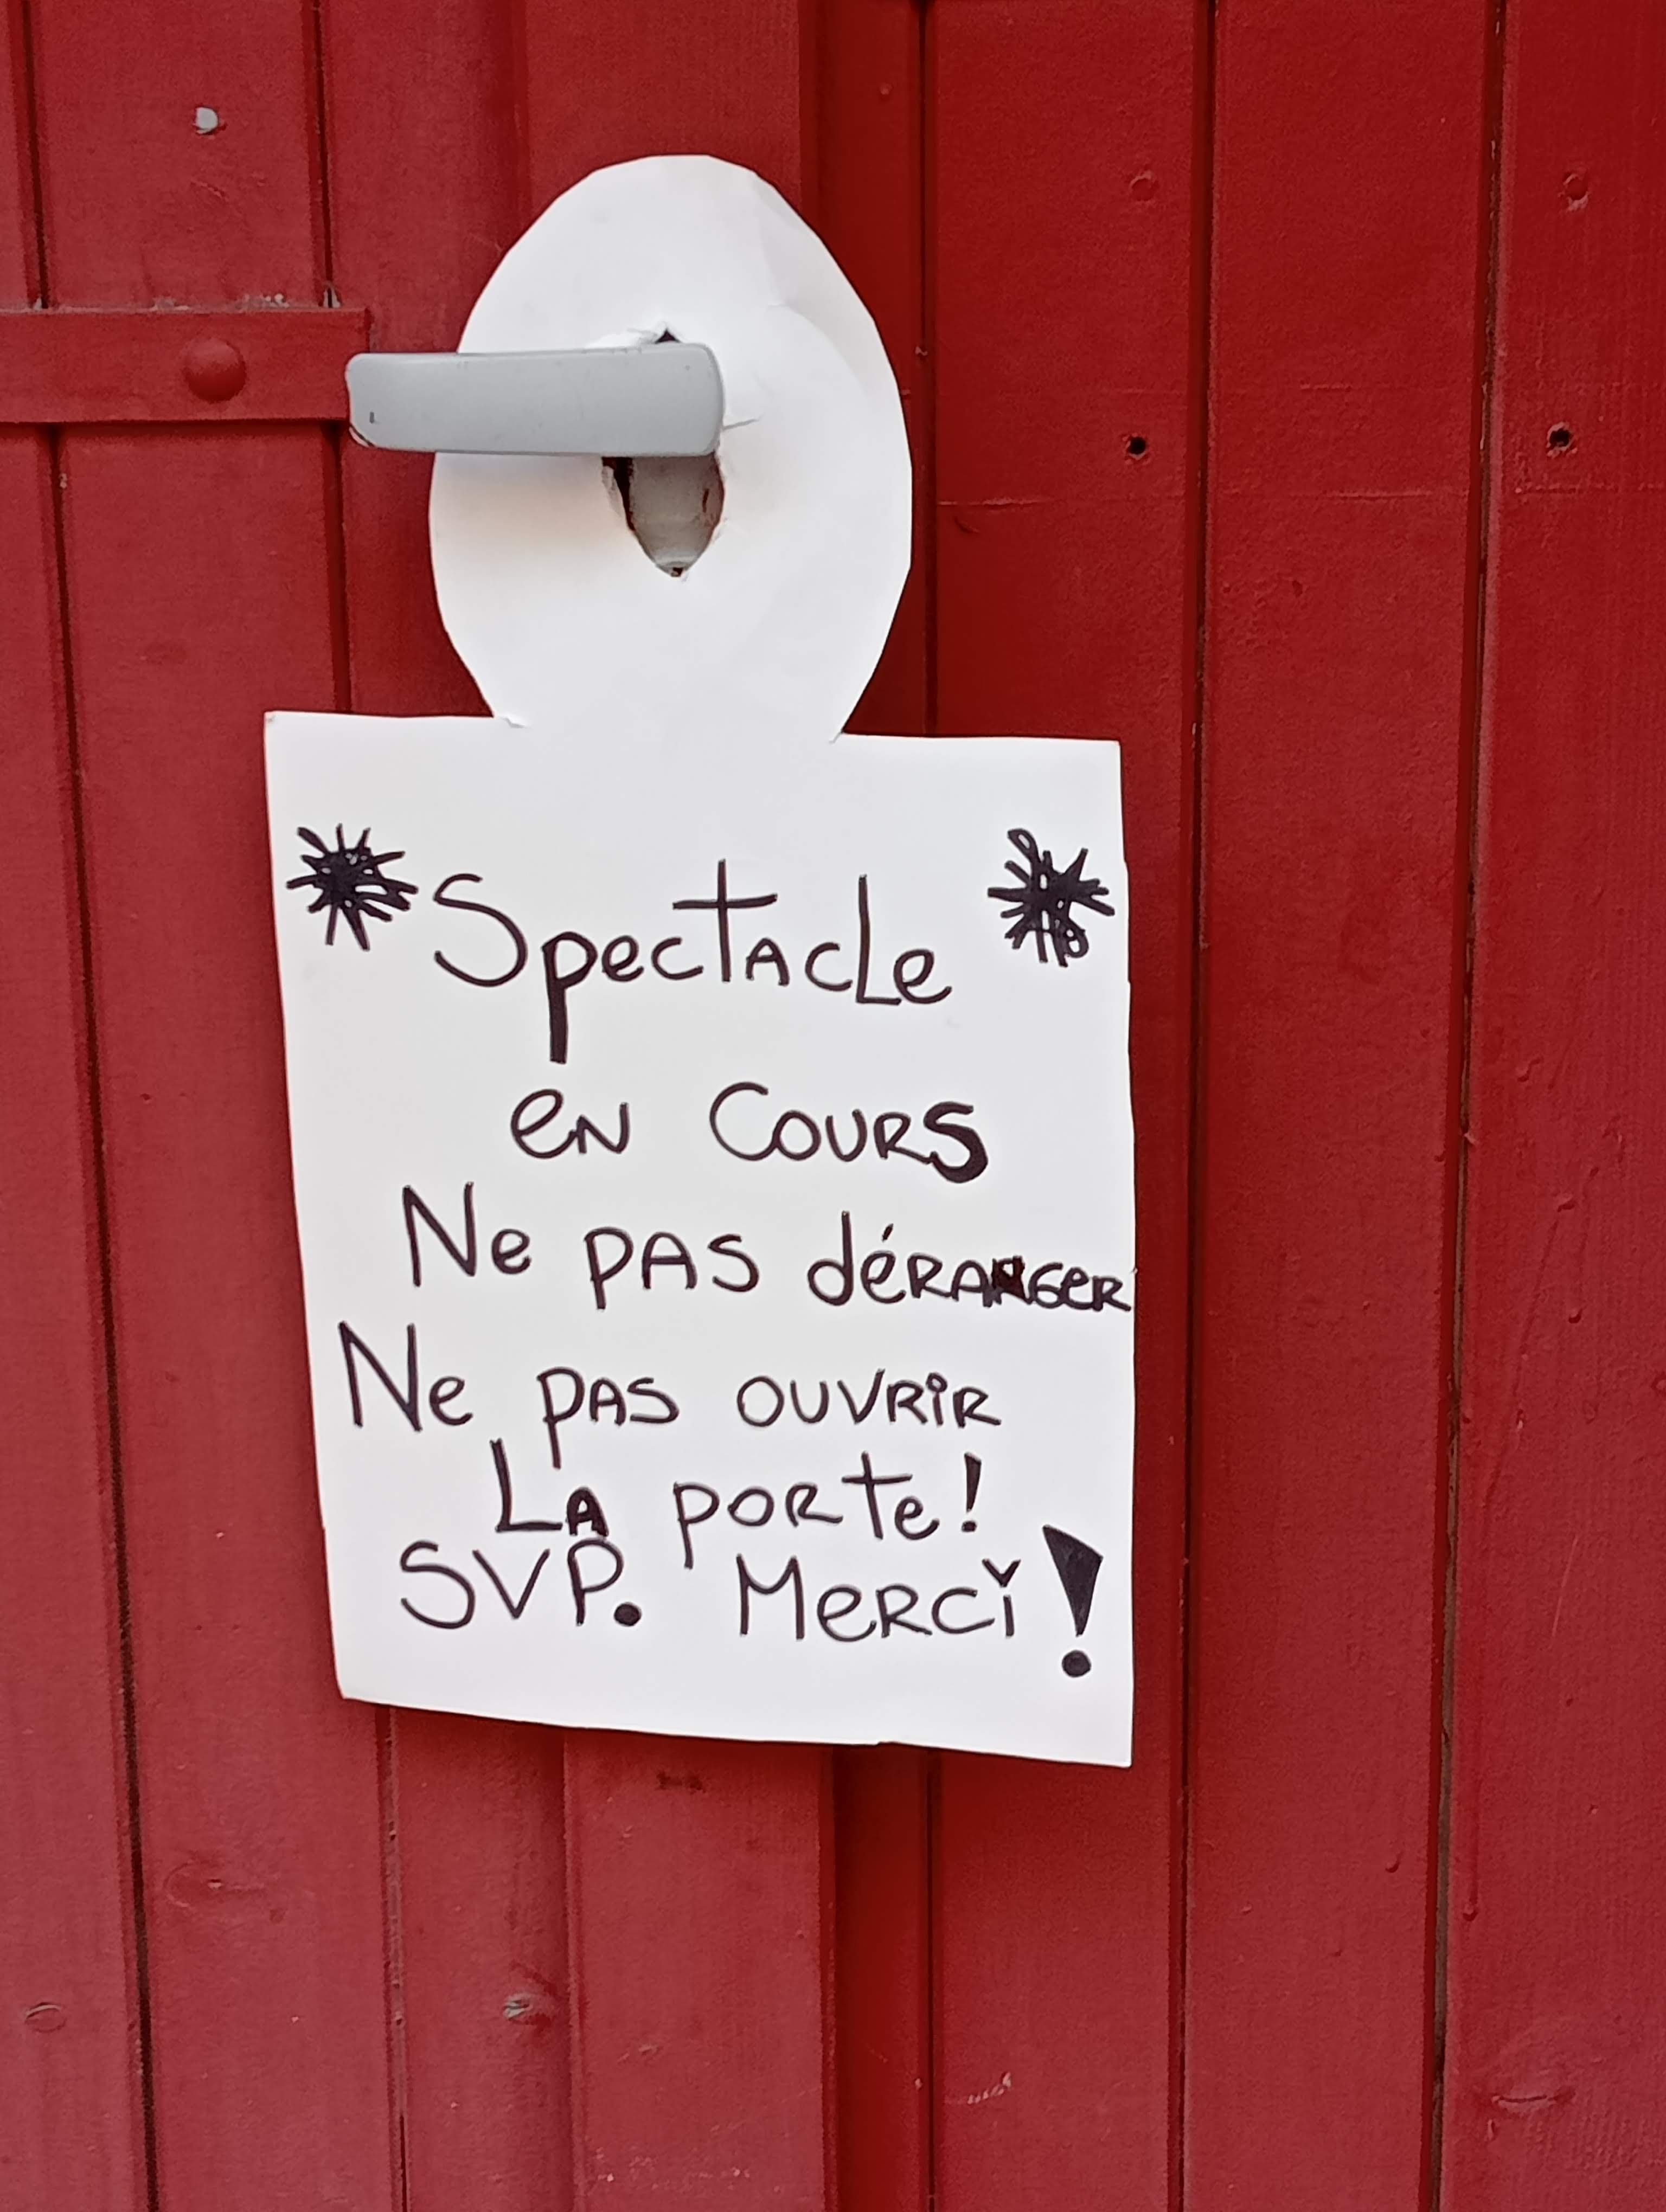 Spectacle
en Cours
Ne pas déranger
Ne pas ouvrir
La porte!
SVP. Merci!